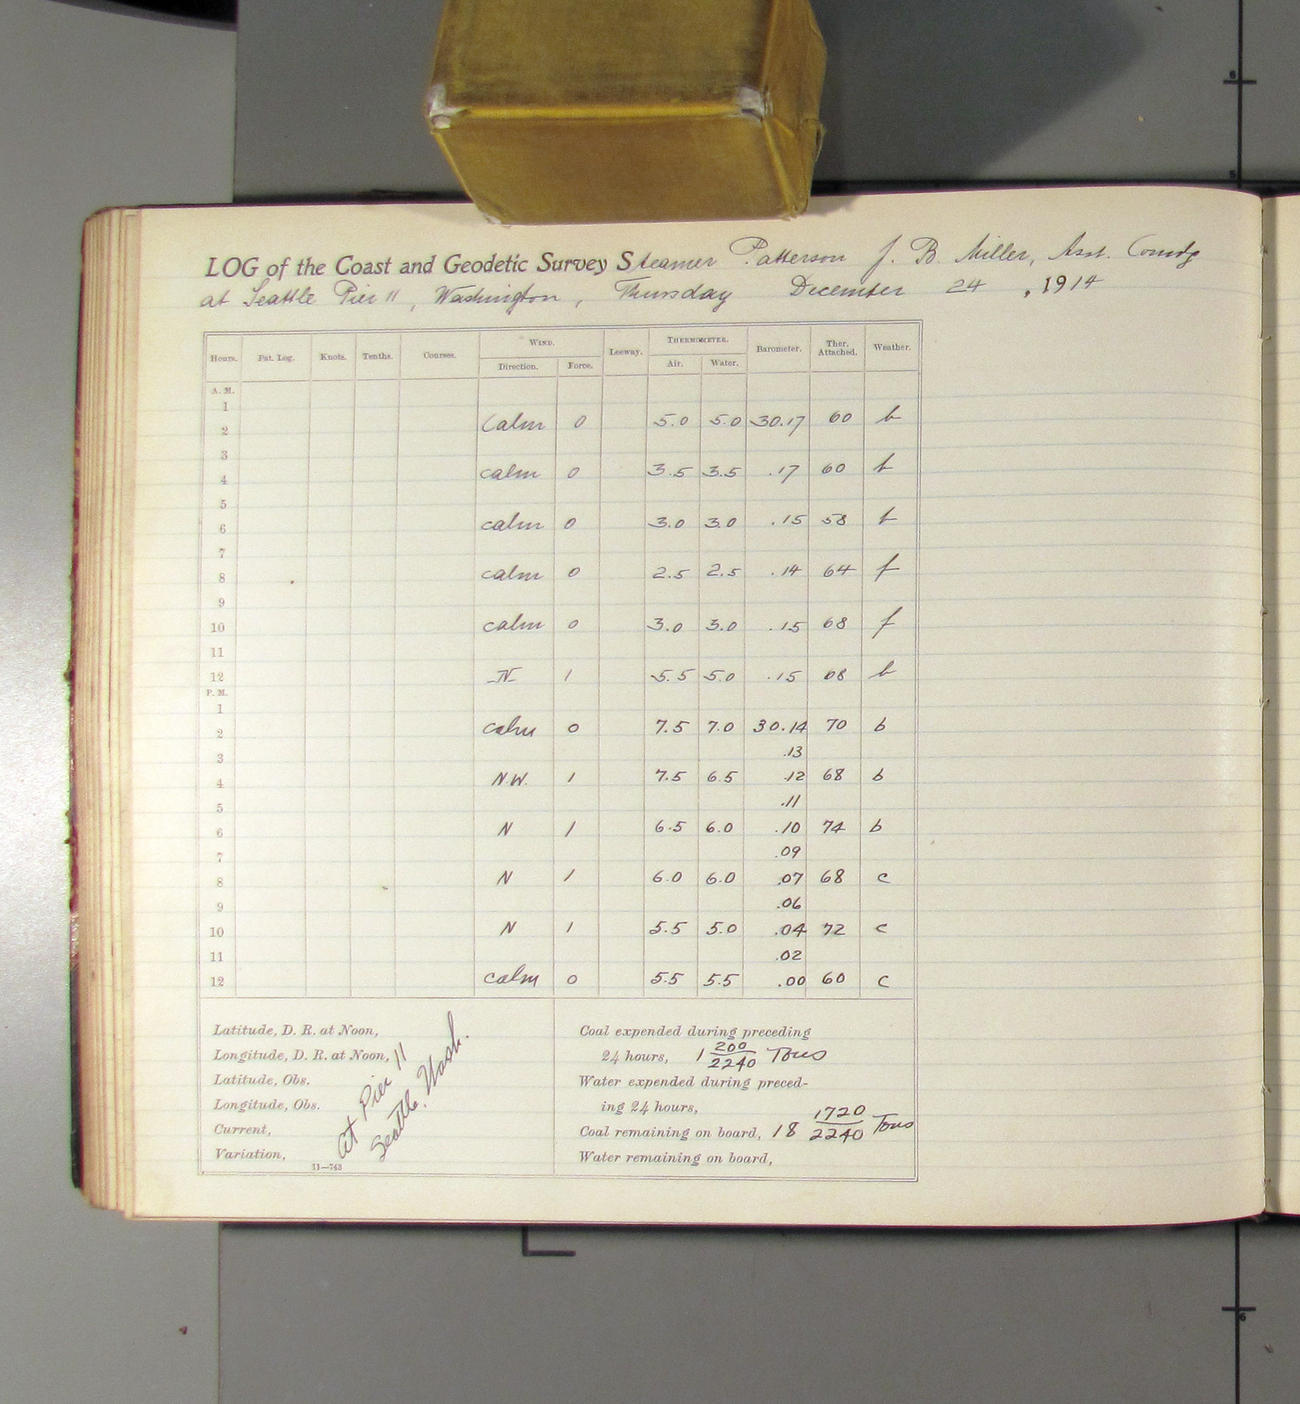 LOG of the Coast and Geodetic Survey Steamer Patterson J. B. Miller, Asst. Comdg
at Seattle Pier 11, Washington, Thursday December 24, 1914
Hours. Pat. Log. Knots. Tenths. Courses. WIND. Direction. Force. Leeway. THERMOMETER. Air. Water. Barometer. Ther. Attached. Weather.
A. M.
1
2 Calm 0 5.0 5.0 30.17 60 b
3
4 calm 0 3.5 3.5 .17 60 b
5
6 calm 0 3.0 3.0 .15 58 b
7
8 calm 0 2.5 2.5 .14 64 f
9
10 calm 0 3.0 3.0 .15 68 f
11
12 N 1 5.5 5.0 .15 68 b
P. M.
1
2 calm 0 7.5 7.0 30.14 70 b
3 .13
4 N.W. 1 7.5 6.5 .12 68 b
5 .11
6 N 1 6.5 6.0 .10 74 b
7 .09
8 N 1 6.0 6.0 .07 68 c
9 .06
10 N 1 5.5 5.0 .04 72 c
11 .02
12 calm 0 5.5 5.5 .00 60 c
Latitude, D. R. at Noon,
Longitude, D. R. at Noon,
Latitude, Obs.
Longitude, Obs.
Current,
Variation,
At Pier 11
Seattle, Wash.
11—743
Coal expended during preceding
24 hours, 1 200/2240 Tons
Water expended during preced-
ing 24 hours,
Coal remaining on board, 18 1720/2240 Tons
Water remaining on board,
6
5
6